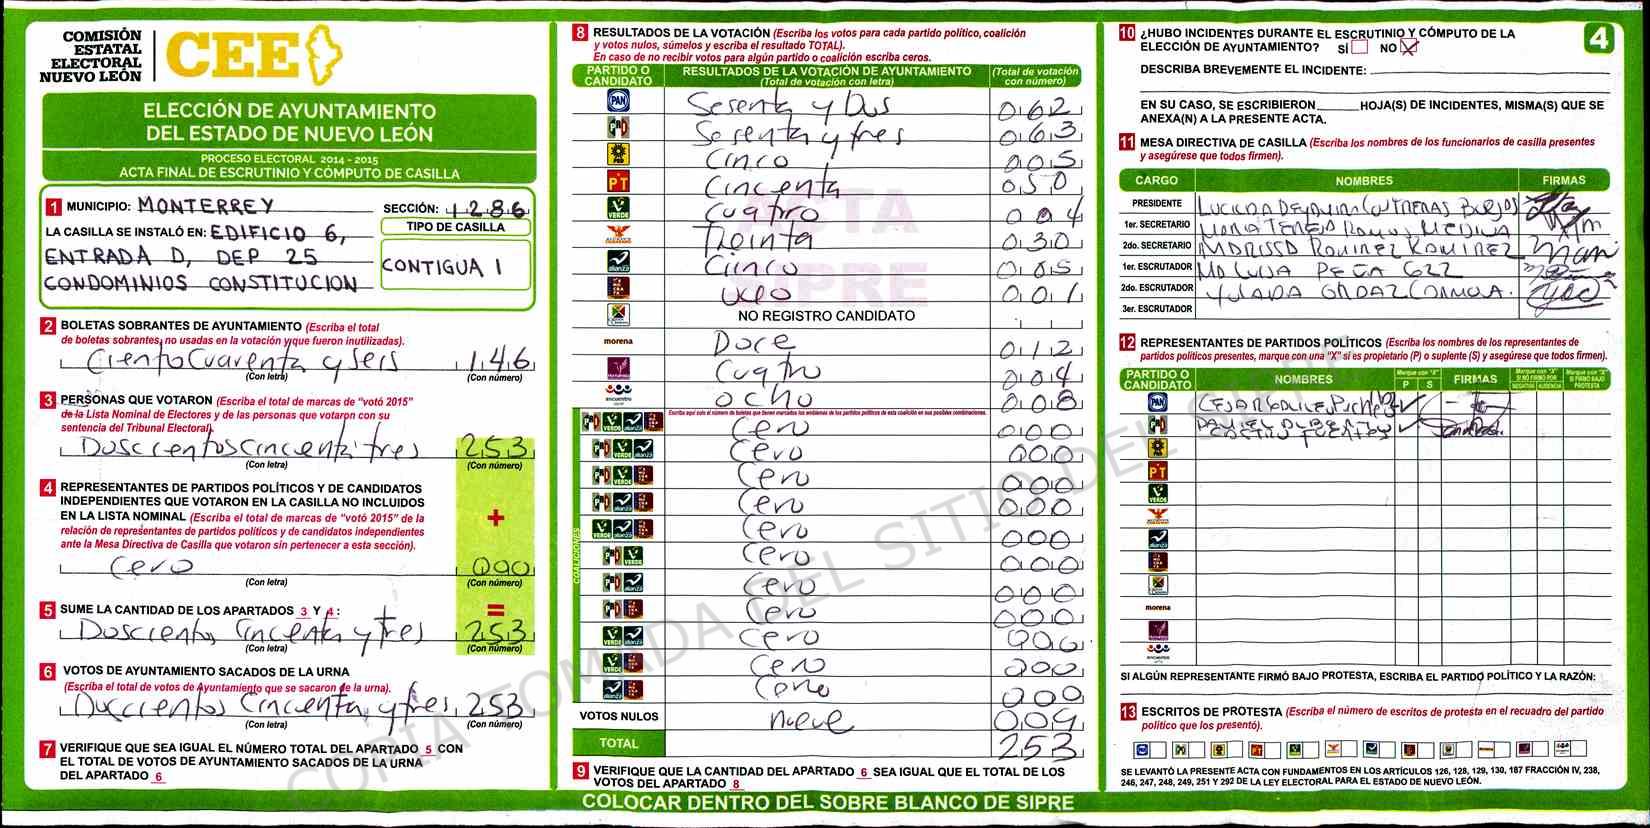 COMISIÓN
ESTATAL
ELECTORAL
NUEVO LEÓN
CEE
ELECCIÓN DE AYUNTAMIENTO
DEL ESTADO DE NUEVO LEÓN
PROCESO ELECTORAL 2014 - 2015
ACTA FINAL DE ESCRUTINIO Y CÓMPUTO DE CASILLA
1 MUNICIPIO: MONTERREY
SECCIÓN: 1286
LA CASILLA SE INSTALÓ EN: EDIFICIO 6,
ENTRADA D, DEP 25
CONDOMINIOS CONSTITUCION
TIPO DE CASILLA
CONTIGUA 1
2 BOLETAS SOBRANTES DE AYUNTAMIENTO (Escriba el total
de boletas sobrantes, no usadas en la votación y que fueron inutilizadas).
Ciento Cuarenta y Seis 146
(Con letra) (Con número)
3 PERSONAS QUE VOTARON (Escriba el total de marcas de "votó 2015"
de la Lista Nominal de Electores y de las personas que votaron con su
sentencia del Tribunal Electoral).
253
(Con letra) (Con número)
4 REPRESENTANTES DE PARTIDOS POLÍTICOS Y DE CANDIDATOS
INDEPENDIENTES QUE VOTARON EN LA CASILLA NO INCLUIDOS
EN LA LISTA NOMINAL (Escriba el total de marcas de "votó 2015" de la
relación de representantes de partidos políticos y de candidatos independientes
ante la Mesa Directiva de Casilla que votaron sin pertenecer a esta sección).
+
Cero 000
(Con letra) (Con número)
=
5 SUME LA CANTIDAD DE LOS APARTADOS 3 Y 4 :
Doscientos Cincenta y tres 253
(Con letra) (Con número)
6 VOTOS DE AYUNTAMIENTO SACADOS DE LA URNA
(Escriba el total de votos de Ayuntamiento que se sacaron de la urna).
Cincenta y tres 253
(Con letra) (Con número)
7 VERIFIQUE QUE SEA IGUAL EL NÚMERO TOTAL DEL APARTADO 5 CON
EL TOTAL DE VOTOS DE AYUNTAMIENTO SACADOS DE LA URNA
DEL APARTADO 6
8 RESULTADOS DE LA VOTACIÓN (Escriba los votos para cada partido político, coalición
y votos nulos, súmelos y escriba el resultado TOTAL).
En caso de no recibir votos para algún partido o coalición escriba ceros.
PARTIDO O CANDIDATO
RESULTADOS DE LA VOTACIÓN DE AYUNTAMIENTO
(Total de votación con letra)
(Total de votación con número)
PAN Sesenta y Dos 062
PRD Sesenta y tres 063
PRD Cinco 005
PT Cincenta 050
VERDE Cuatro 004
Treinta 030
alianza Cinco 005
uno 001
NO REGISTRO CANDIDATO
morena Doce 012
Cuatro 004
encuentro ocho 008
Escriba aquí solo el número de boletas que tienen marcados los emblemas de los partidos políticos de esta coalición en sus posibles combinaciones.
COALICIONES
Cero 000
Cero 000
Cero 000
Cero 000
Cero 000
Cero 000
Cero 000
Cero 000
Cero 000
Cero 000
Cero 000
VOTOS NULOS nueve 009
TOTAL 253
9 VERIFIQUE QUE LA CANTIDAD DEL APARTADO 6 SEA IGUAL QUE EL TOTAL DE LOS
VOTOS DEL APARTADO 8
COLOCAR DENTRO DEL SOBRE BLANCO DE SIPRE
ACTA
SIPRE
COPIA TOMADA DEL SITIO DEL SIPRE
10 ¿HUBO INCIDENTES DURANTE EL ESCRUTINIO Y CÓMPUTO DE LA
ELECCIÓN DE AYUNTAMIENTO? SÍ NO X
4
DESCRIBA BREVEMENTE EL INCIDENTE:
EN SU CASO, SE ESCRIBIERON HOJA(S) DE INCIDENTES, MISMA(S) QUE SE
ANEXA(N) A LA PRESENTE ACTA.
11 MESA DIRECTIVA DE CASILLA (Escriba los nombres de los funcionarios de casilla presentes
y asegúrese que todos firmen).
CARGO NOMBRES FIRMAS
PRESIDENTE
1er. SECRETARIO MARIA TERESA RAMOS MEDINA
2do. SECRETARIO MARISSA RAMIREZ RAMIREZ
1er. ESCRUTADOR MA LUISA PEÑA
2do. ESCRUTADOR
3er. ESCRUTADOR
12 REPRESENTANTES DE PARTIDOS POLÍTICOS (Escriba los nombres de los representantes de
partidos políticos presentes, marque con una "X" si es propietario (P) o suplente (S) y asegúrese que todos firmen).
PARTIDO O CANDIDATO
NOMBRES
Marque con "X"
P S
FIRMAS
Marque con "X" SI NO FIRMÓ POR
NEGATIVA AUSENCIA
Marque con "X" SI FIRMÓ BAJO PROTESTA
PAN
PRD
PT
VERDE
alianza
morena
encuentro
SI ALGÚN REPRESENTANTE FIRMÓ BAJO PROTESTA, ESCRIBA EL PARTIDO POLÍTICO Y LA RAZÓN:
13 ESCRITOS DE PROTESTA (Escriba el número de escritos de protesta en el recuadro del partido
político que los presentó).
SE LEVANTÓ LA PRESENTE ACTA CON FUNDAMENTOS EN LOS ARTÍCULOS 126, 128, 129, 130, 187 FRACCIÓN IV, 238,
246, 247, 248, 249, 251 Y 292 DE LA LEY ELECTORAL PARA EL ESTADO DE NUEVO LEÓN.